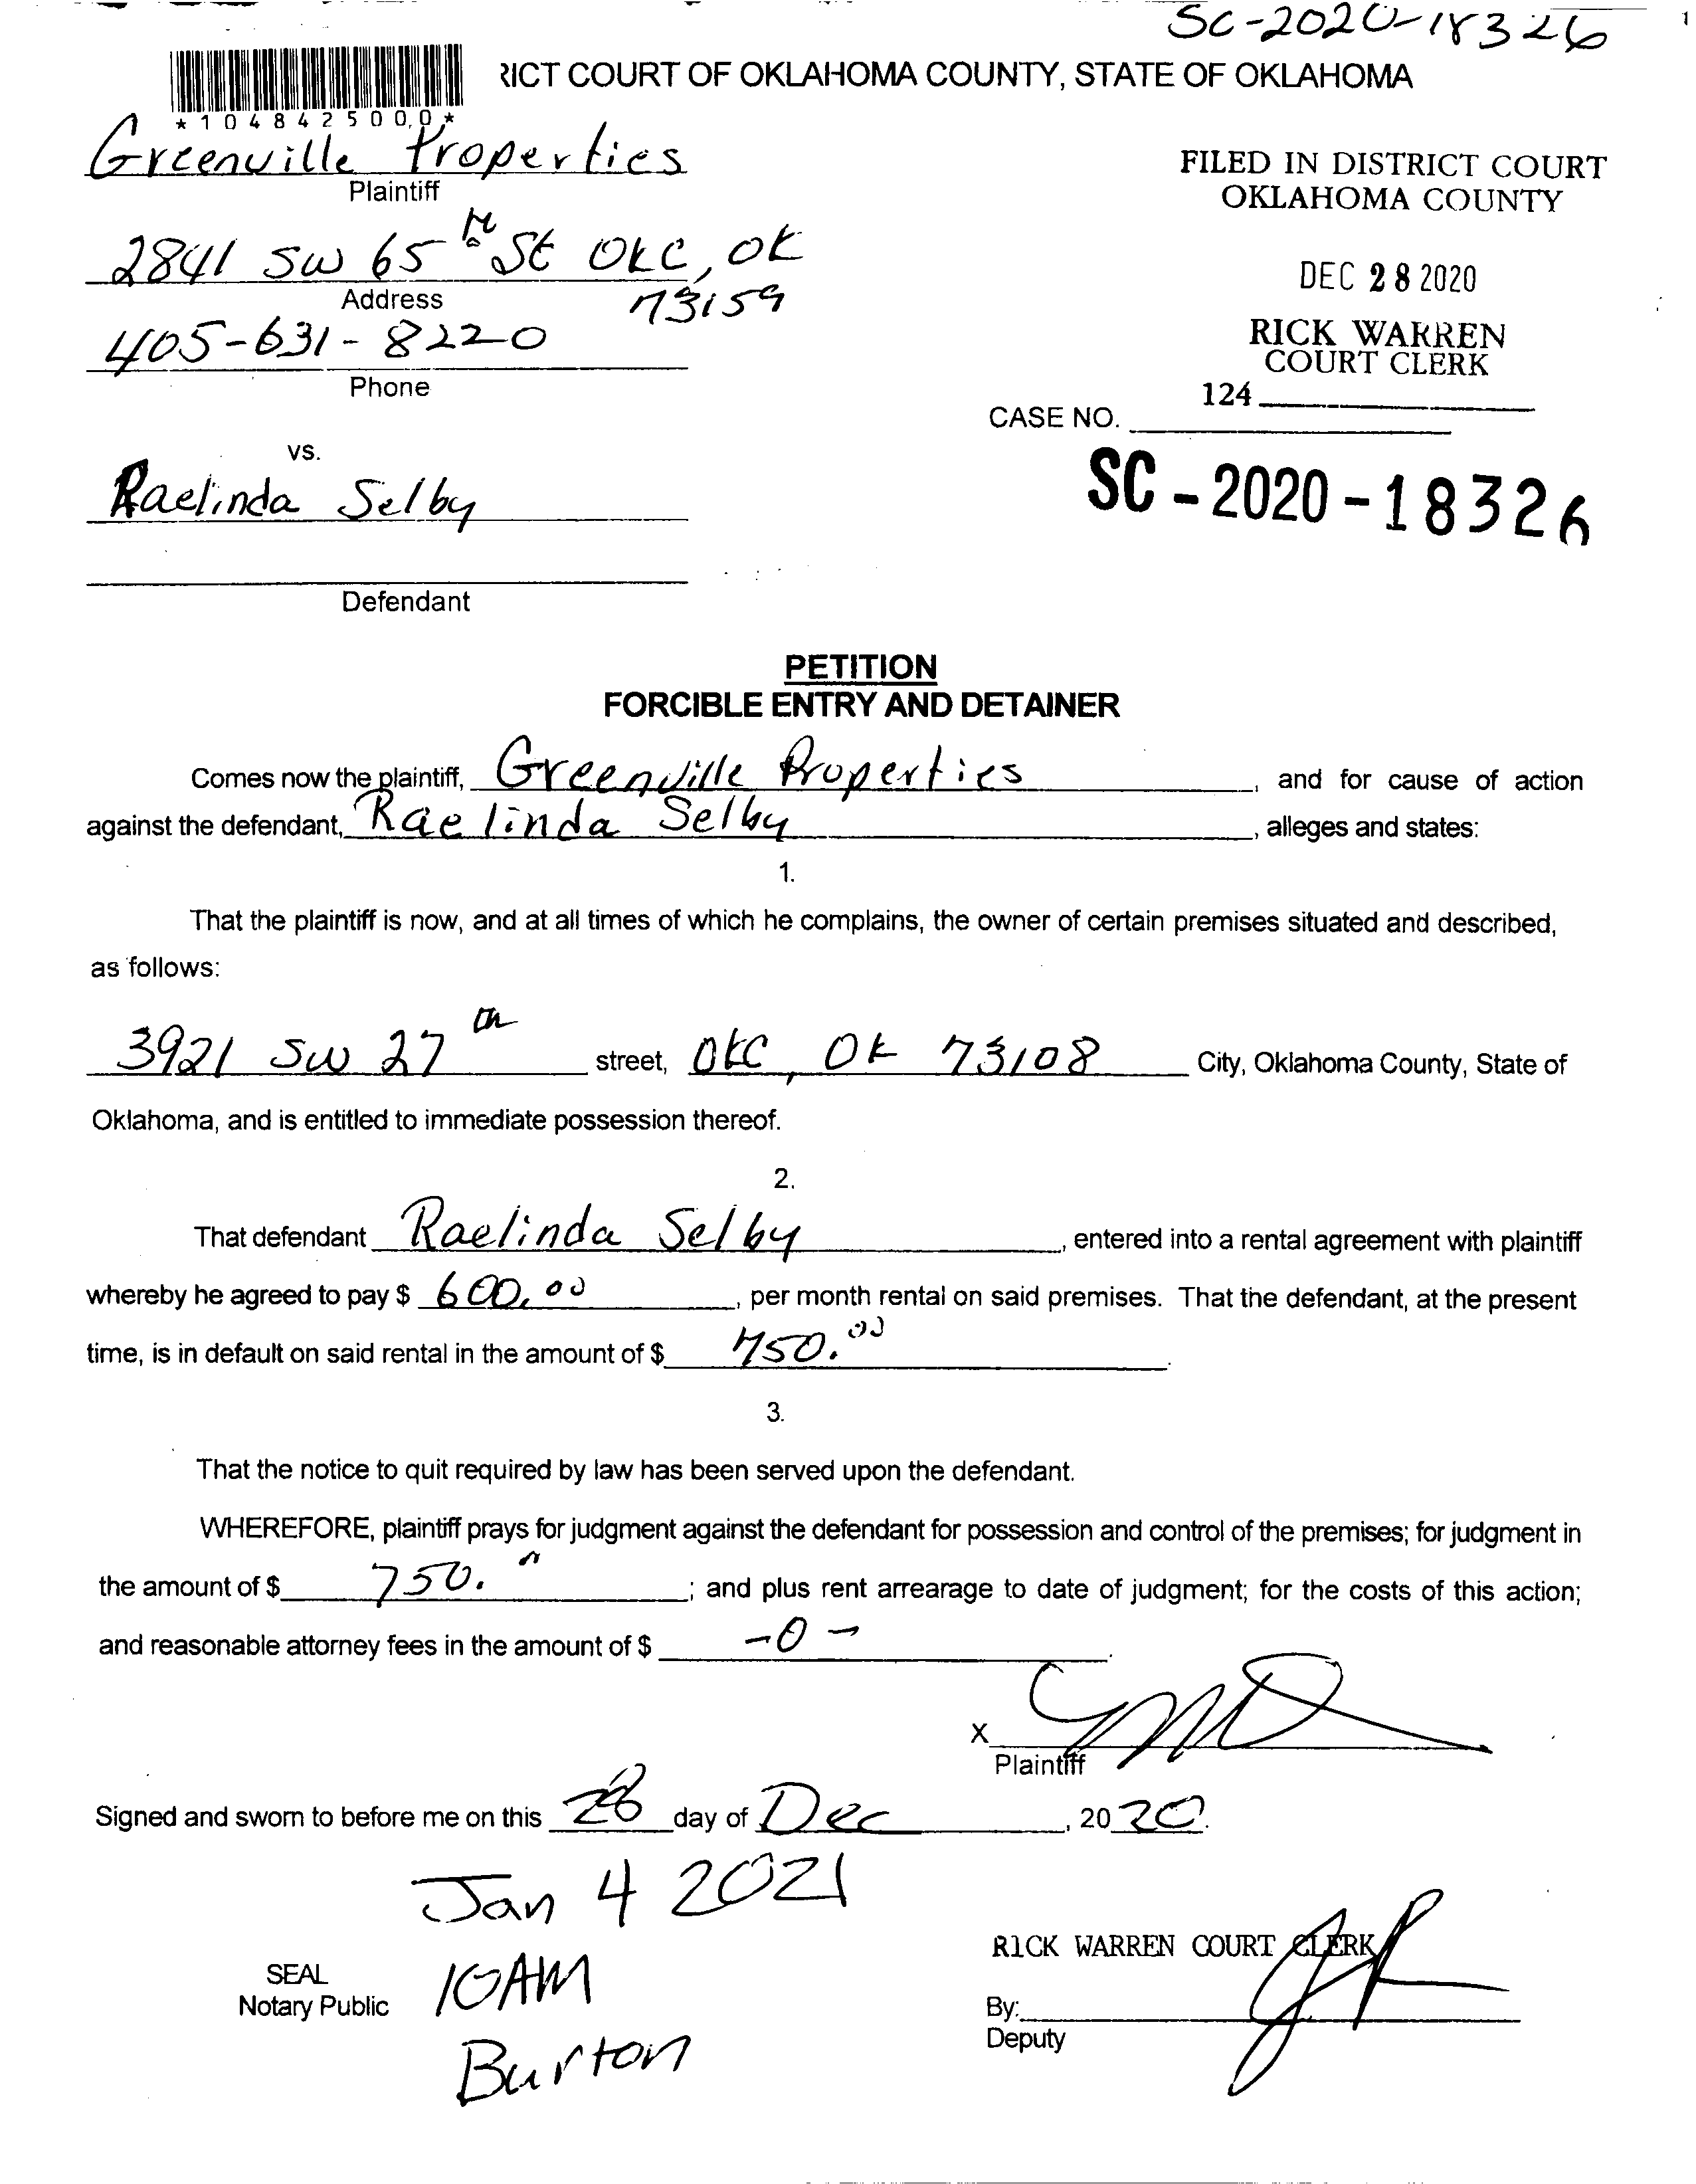 SC-2020-18326
RICT COURT OF OKLAHOMA COUNTY, STATE OF OKLAHOMA
*1048425000*
Greenville Properties
Plaintiff
FILED IN DISTRICT COURT
OKLAHOMA COUNTY
2841 SW 65th St OKC, OK
73159
Address
DEC 28 2020
405-631-8220
Phone
RICK WARREN
COURT CLERK
124
CASE NO.
vs.
SC-2020-18326
Raelinda Selby
Defendant
PETITION
FORCIBLE ENTRY AND DETAINER
Comes now the plaintiff, Greenville Properties, and for cause of action
against the defendant, Raelinda Selby, alleges and states:
1.
That the plaintiff is now, and at all times of which he complains, the owner of certain premises situated and described,
as follows:
3921 SW 27th street, OKC, OK 73108 City, Oklahoma County, State of
Oklahoma, and is entitled to immediate possession thereof.
2.
That defendant Raelinda Selby, entered into a rental agreement with plaintiff
whereby he agreed to pay $ 600.00, per month rental on said premises. That the defendant, at the present
time, is in default on said rental in the amount of $ 750.00.
3.
That the notice to quit required by law has been served upon the defendant.
WHEREFORE, plaintiff prays for judgment against the defendant for possession and control of the premises; for judgment in
the amount of $ 750.; and plus rent arrearage to date of judgment; for the costs of this action;
and reasonable attorney fees in the amount of $ -0-.
X
Plaintiff
Signed and sworn to before me on this 28 day of Dec, 2020.
Jan 4 2021
RICK WARREN COURT CLERK
SEAL
Notary Public
10AM
By:
Deputy
Burton